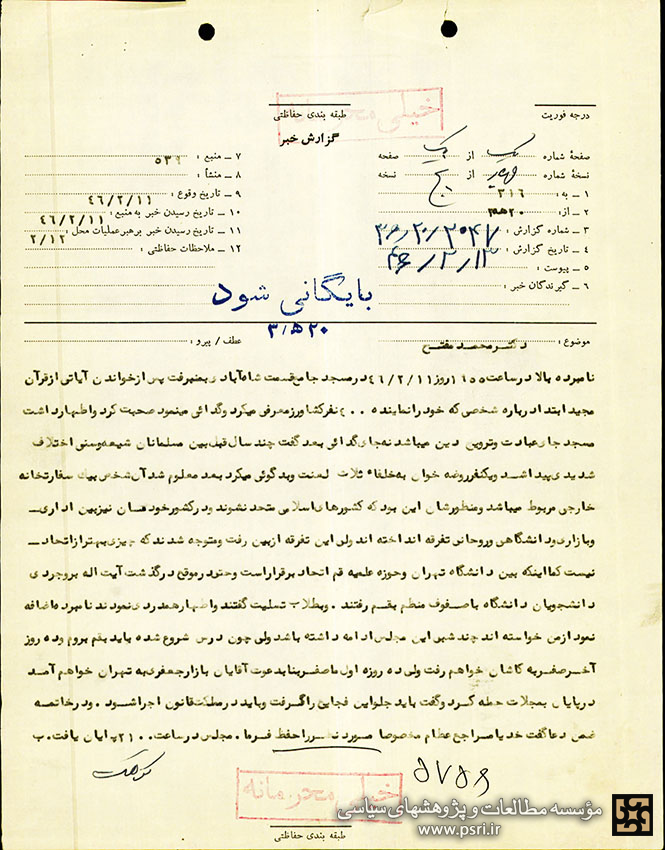 درجه فوریت
طبقه بندی حفاظتی
خیلی محرمانه
گزارش خبر
صفحهٔ شماره یک از یک صفحه
نسخهٔ شماره چهار از پنج نسخه
۱ ـ به : ۳۱۶
۲ ـ از : ۲۰ ه‍ ۳
۳ ـ شماره گزارش :
۴ ـ تاریخ گزارش : ۴۶/۲/۱۳
۵ ـ پیوست :
۶ ـ گیرندگان خبر :
۷ ـ منبع : ۵۳۹
۸ ـ منشأ :
۹ ـ تاریخ وقوع : ۴۶/۲/۱۱
۱۰ ـ تاریخ رسیدن خبر به منبع : ۴۶/۲/۱۱
۱۱ ـ تاریخ رسیدن خبر برهبر عملیات محل : ۲/۱۲
۱۲ ـ ملاحظات حفاظتی :
بایگانی شود
۲۰ ه‍ ۳
موضوع : دکتر محمد مفتح
عطف / پیرو :
نامبرده بالا در ساعت روز ۴۶/۲/۱۱ در مسجد جامع قسمت شاه‌آبادی بمنبر رفت پس از خواندن آیاتی از قرآن
مجید ابتدا درباره شخصی که خود را نماینده ۴۰۰ نفر کشاورز معرفی میکرد و گدائی مینمود صحبت کرد و اظهار داشت
مسجد جای عبادت و ترویج دین میباشد نه جای گدائی بعد گفت چند سال قبل بین مسلمانان شیعه و سنی اختلاف
شدیدی پیدا شد و یکنفر روضه خوان به خلفاء ثلاث لعنت و بدگوئی میکرد بعد معلوم شد آن شخص بیک سفارتخانه
خارجی مربوط میباشد و منظورشان این بود که کشورهای اسلامی متحد نشوند و در کشور خودمان نیز بین اداری ـ
و بازاری و دانشگاهی و روحانی تفرقه انداخته اند ولی این تفرقه از بین رفت و متوجه شدند که چیزی بهتر از اتحاد ـ
نیست کما اینکه بین دانشگاه تهران و حوزه علمیه قم اتحاد برقرار است و حتی در موقع درگذشت آیت اله بروجردی
دانشجویان دانشگاه با صفوف منظم بقم رفتند . و بطلاب تسلیت گفتند و اظهار همدردی نمودند نامبرده اضافه
نمود از من خواسته اند چند شبی این مجلس ادامه داشته باشد ولی چون درس شروع شده باید بقم بروم و ده روز
آخر صفر به کاشان خواهم رفت ولی ده روزه اول ماه صفر بنا بدعوت آقایان بازار جعفری به تهران خواهم آمد
در پایان بمجلات حمله کرد و گفت باید جلو این فجایع را گرفت و باید در مملکت قانون اجرا شود . و در خاتمه
ضمن دعا گفت خدایا مراجع عظام مخصوصا مورد نظر را حفظ فرما . مجلس در ساعت ۲۱۰۰ پایان یافت . ب
خیلی محرمانه
طبقه بندی حفاظتی
مؤسسه مطالعات و پژوهشهای سیاسی
www.psri.ir